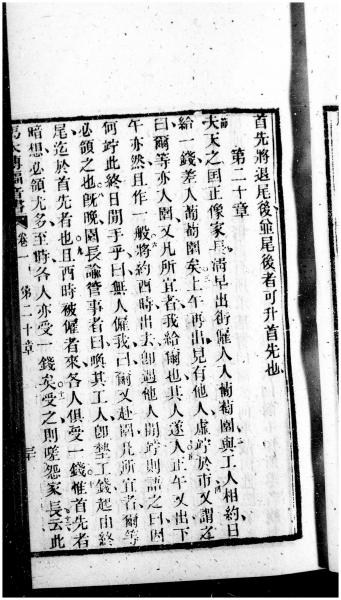 首先將退尾後並尾後者可升首先也
第二十章
節
夫天之國正像家長清早出街僱人入葡萄園與工人相約日
給一錢差人葡萄園矣上午再出見有他人虛竚於市又謂之
曰爾等亦入園又凡所宜者我給爾也其人遂入正午又出下
午亦然且作一般將約酉時出去卽遇他人閒竚則語之曰因
何竚此終日閒于乎曰無人僱我曰爾又赴園凡所宜者爾等
必領之也旣晚園長諭管事者曰喚其工人卽墊工錢起由終
尾迄於首先者也且酉時被僱者來各人俱受一錢惟首先者
暗想必領尤多至時各人亦受一錢矣受之則嗟怨家長云此
馬太傳福音書 卷一 第二十章 三十